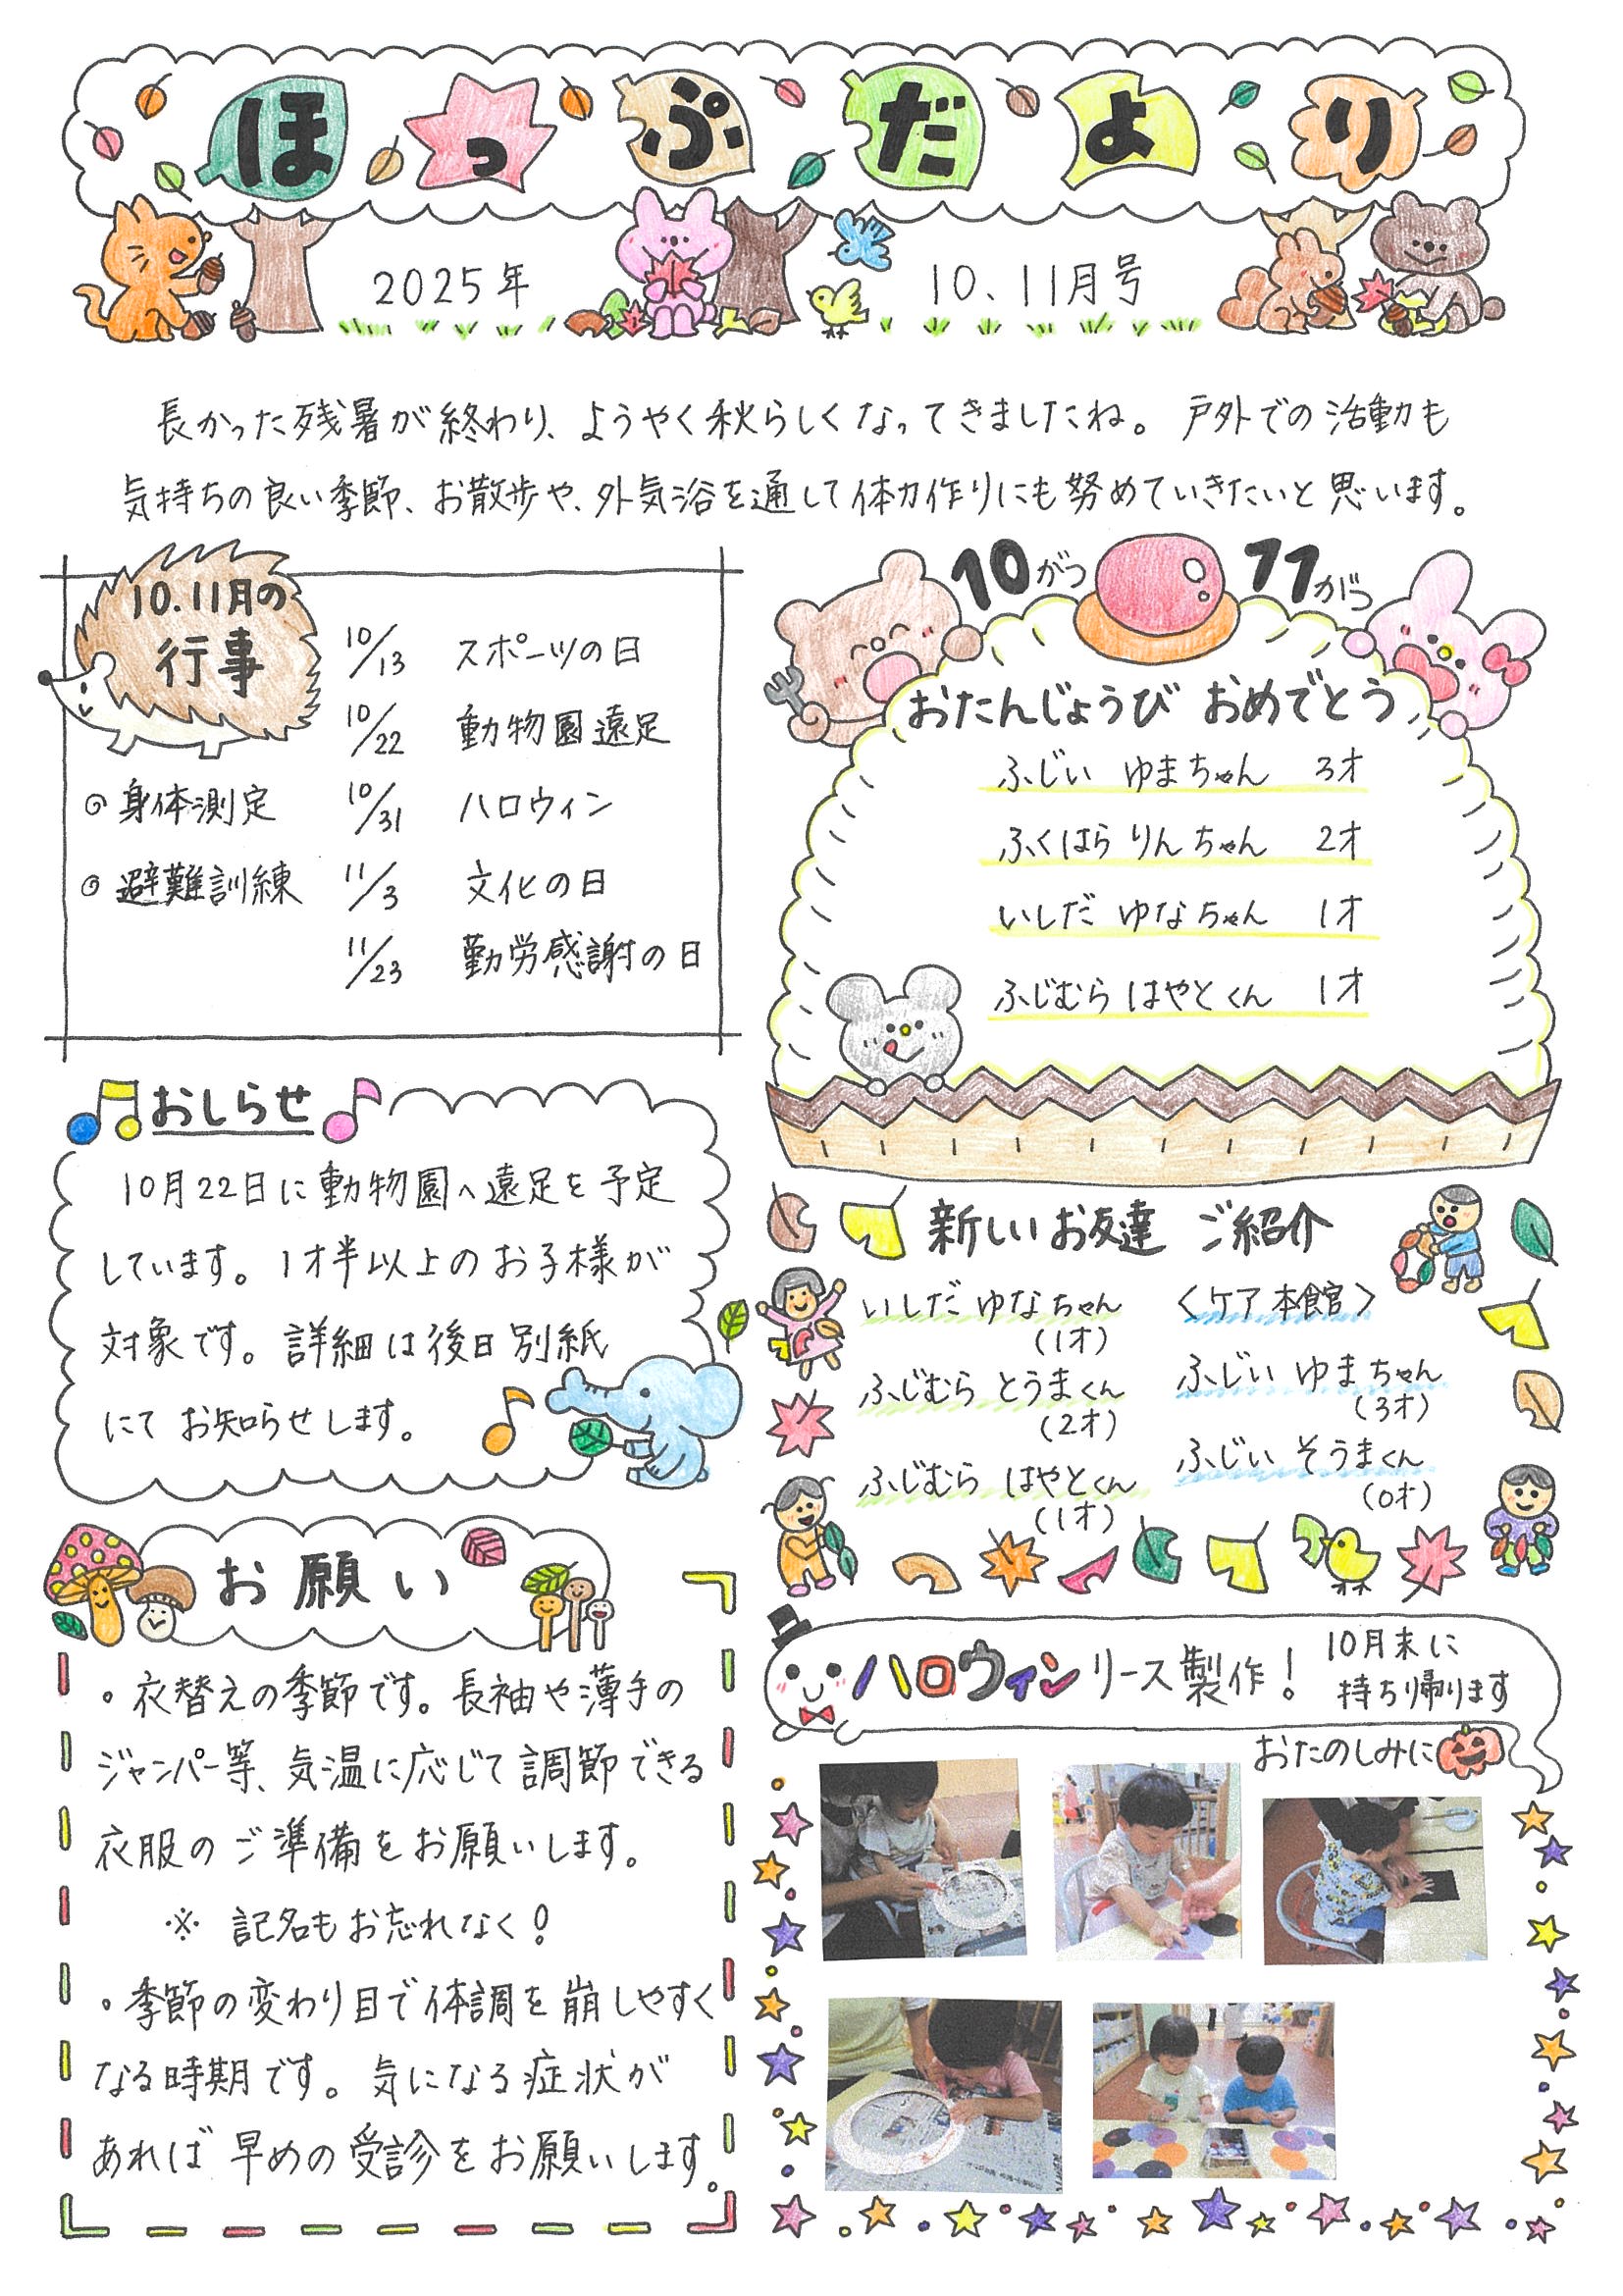 ほっぷだより
2025年 10、11月号
長かった残暑が終わり、ようやく秋らしくなってきましたね。戸外での活動も
気持ちの良い季節、お散歩や、外気浴を通して体力作りにも努めていきたいと思います。
10.11月の
行事
10/13 スポーツの日
10/22 動物園遠足
10/31 ハロウィン
11/3 文化の日
11/23 勤労感謝の日
◎身体測定
◎避難訓練
10がつ 11がつ
おたんじょうび おめでとう
ふじい ゆまちゃん 3才
ふくはら りんちゃん 2才
いしだ ゆなちゃん 1才
ふじむら はやとくん 1才
おしらせ
10月22日に動物園へ遠足を予定
しています。1才半以上のお子様が
対象です。詳細は後日別紙
にてお知らせします。
新しいお友達 ご紹介
いしだ ゆなちゃん
(1才)
ふじむら とうまくん
(2才)
ふじむら はやとくん
(1才)
〈ケア本館〉
ふじい ゆまちゃん
(3才)
ふじい そうまくん
(0才)
お願い
・衣替えの季節です。長袖や薄手の
ジャンパー等、気温に応じて調節できる
衣服のご準備をお願いします。
※ 記名もお忘れなく!
・季節の変わり目で体調を崩しやすく
なる時期です。気になる症状が
あれば早めの受診をお願いします。
ハロウィンリース製作!
10月末に
持ち帰ります
おたのしみに